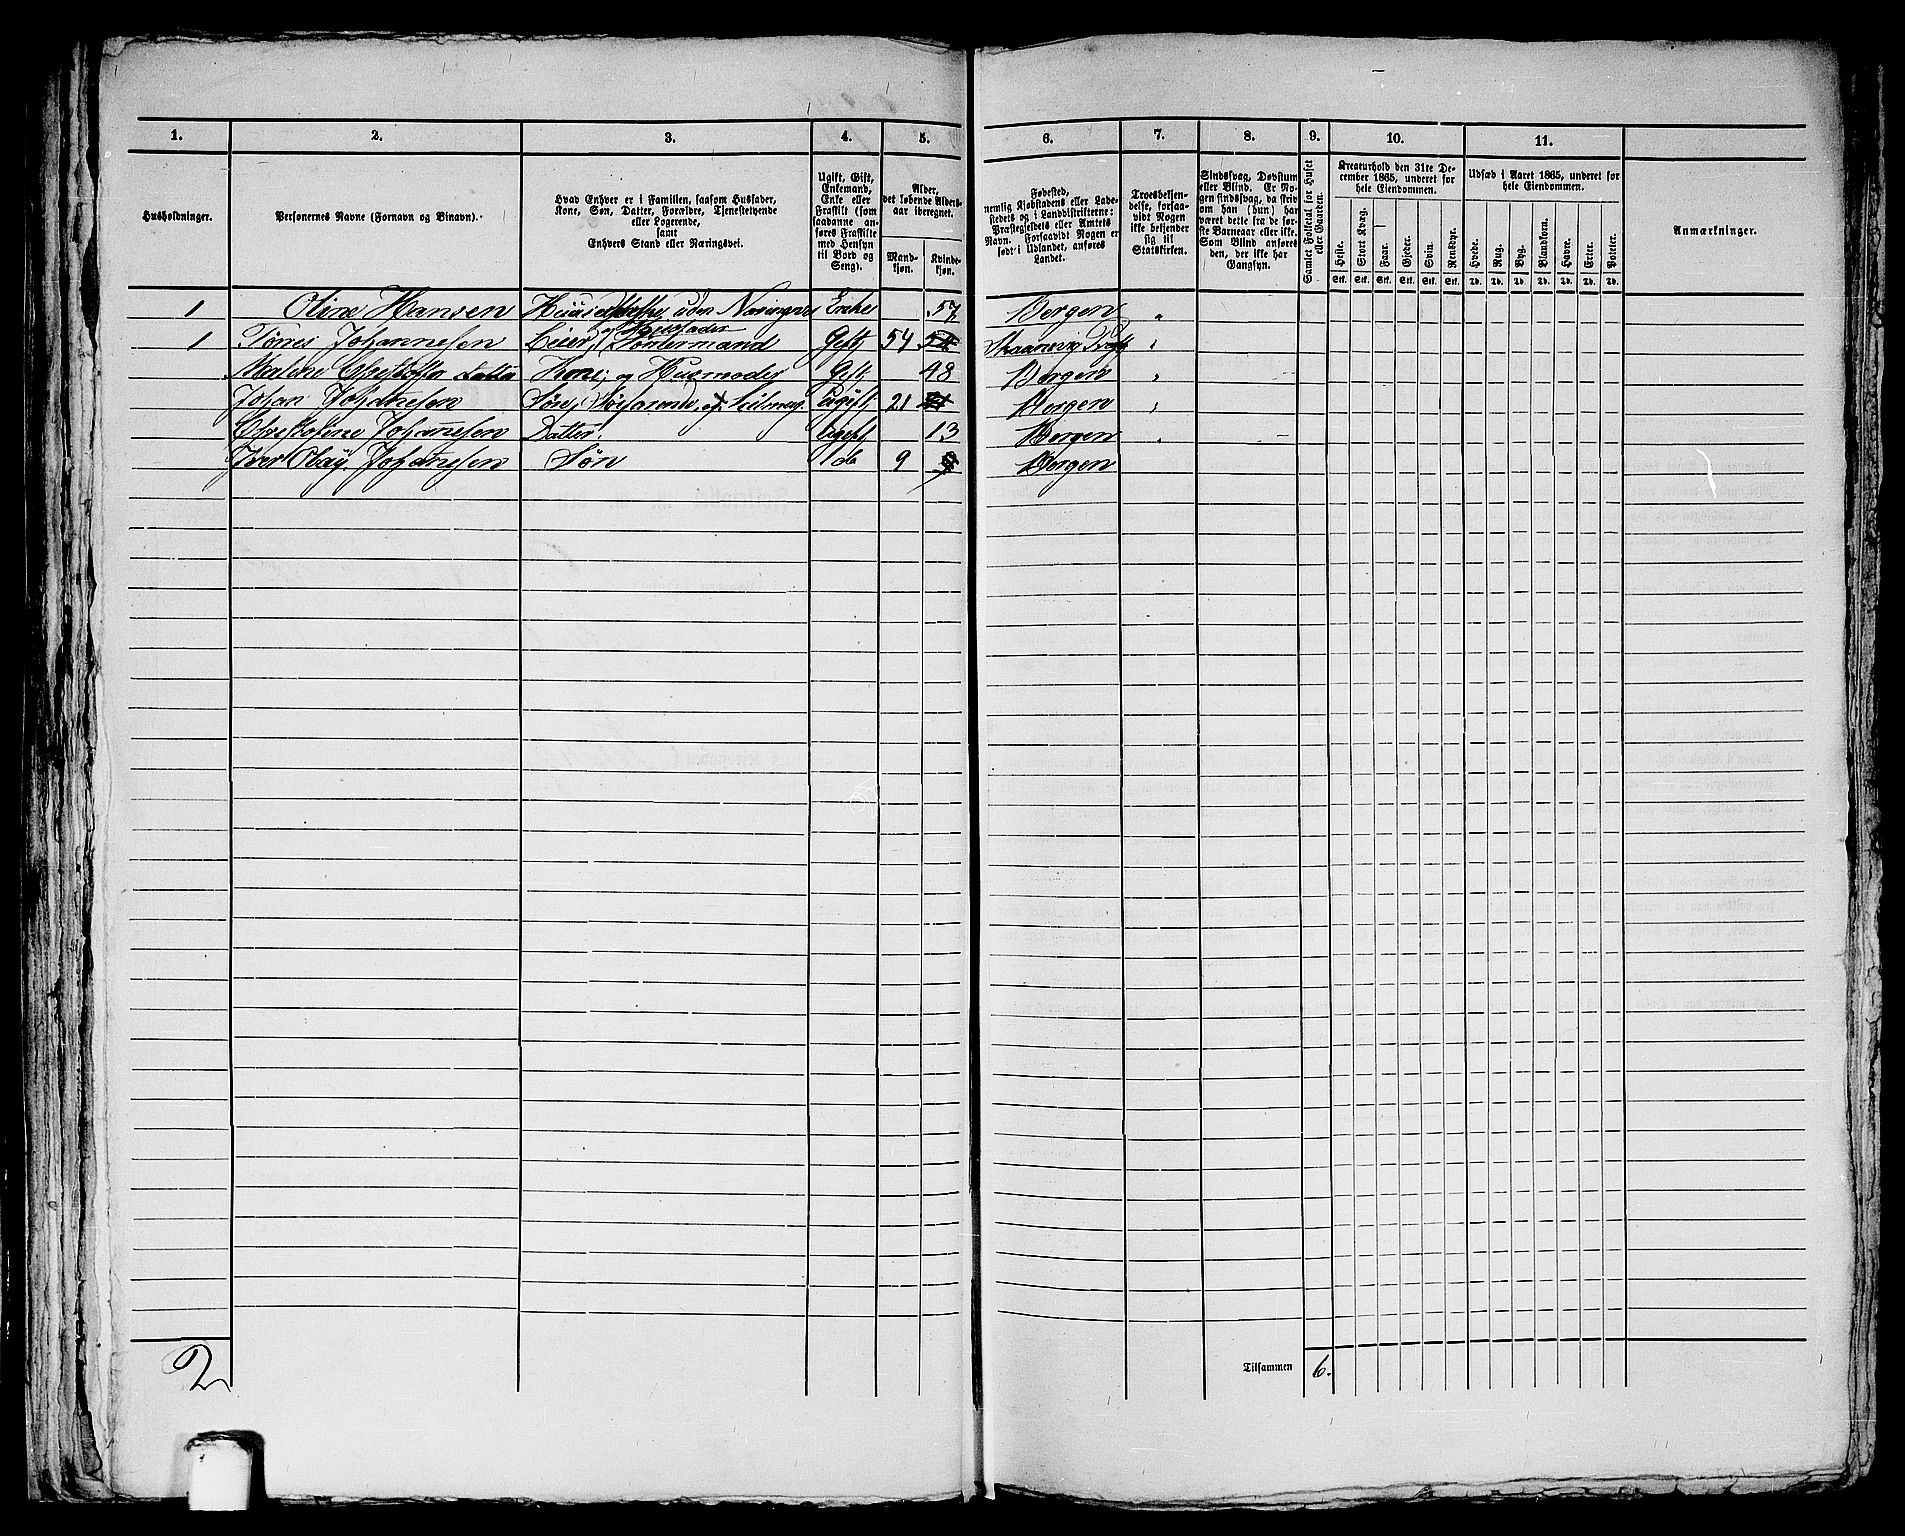 1. 2. 3. 4. 5. 6. 7. 8. 9. 10. 11.
Husholdninger.
Personernes Navne (Fornavn og Binavn).
Hvad Enhver er i Familien, saasom Husfader,
Kone, Søn, Datter, Forældre, Tjenestetyende
eller Logerende,
samt
Enhvers Stand eller Næringsvei.
Ugift, Gift,
Enkemand,
Enke eller
Fraskilt (som
saadanne an-
føres Fraskilte
med Hensyn
til Bord og
Seng).
Alder,
det løbende Alders-
aar iberegnet.
Mand-
kjøn.
Kvinde-
kjøn.
Fødested,
nemlig Kjøbstadens eller Lade-
stedets og i Landdistrikterne:
Præstegjeldets eller Amtets
Navn. Forsaavidt Nogen er
født i Udlandet, anføres
Landet.
Troesbekjen-
delse, forsaa-
vidt Nogen
ikke bekjender
sig til
Statskirken.
Sindssvag, Døvstum
eller Blind. Er No-
gen sindssvag, da skriv
om han (hun) har
været dette fra de før-
ste Barneaar eller ikke.
Som Blind anføres
den, der ikke har
Gangsyn.
Samlet Folketal for Huset
eller Gaarden.
Kreaturhold den 31te De-
cember 1865, underet for
hele Eiendommen.
Heste. Stort Kvæg. Faar. Gjeder. Svin. Rensdyr.
Stk. Stk. Stk. Stk. Stk. Stk.
Udsæd i Aaret 1865, underet for
hele Eiendommen.
Hvede. Rug. Byg. Blandkorn. Havre. Erter. Poteter.
Td. Td. Td. Td. Td. Td. Td.
Anmærkninger.
1 Oline Hansen uden Enke 57 Bergen "
1 Johannesen Leier, og Husfader Gift 54 "
Malene datter Kone, og Husmoder Gift 48 Bergen "
Johan Johannesen Søn, Ugift 21 Bergen "
Johannesen Datter. Ugift 13 Bergen "
Iver Olay Johannesen Søn do 9 Bergen
2
Tilsammen 6.